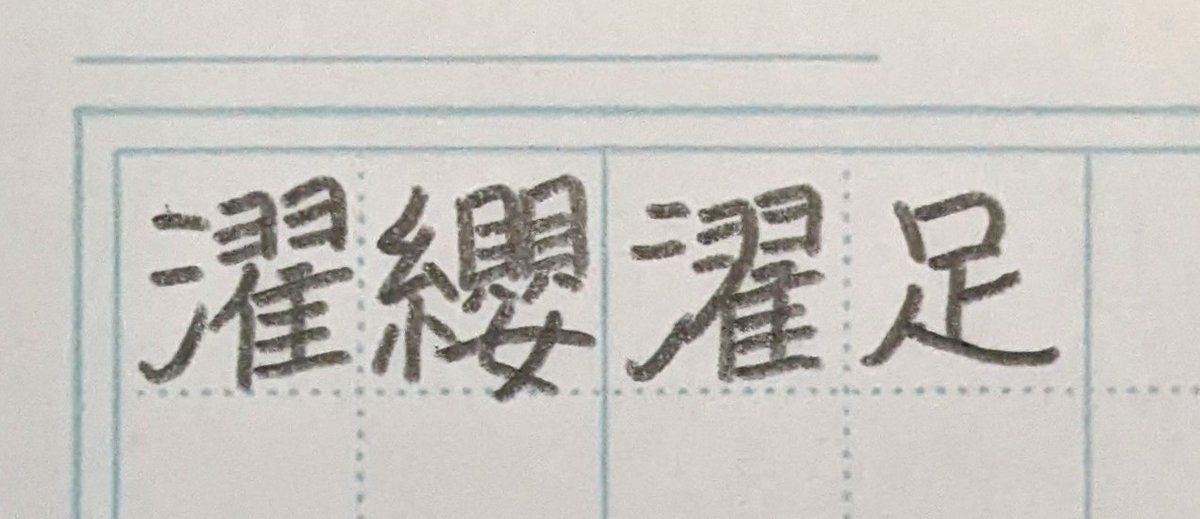 濯纓濯足